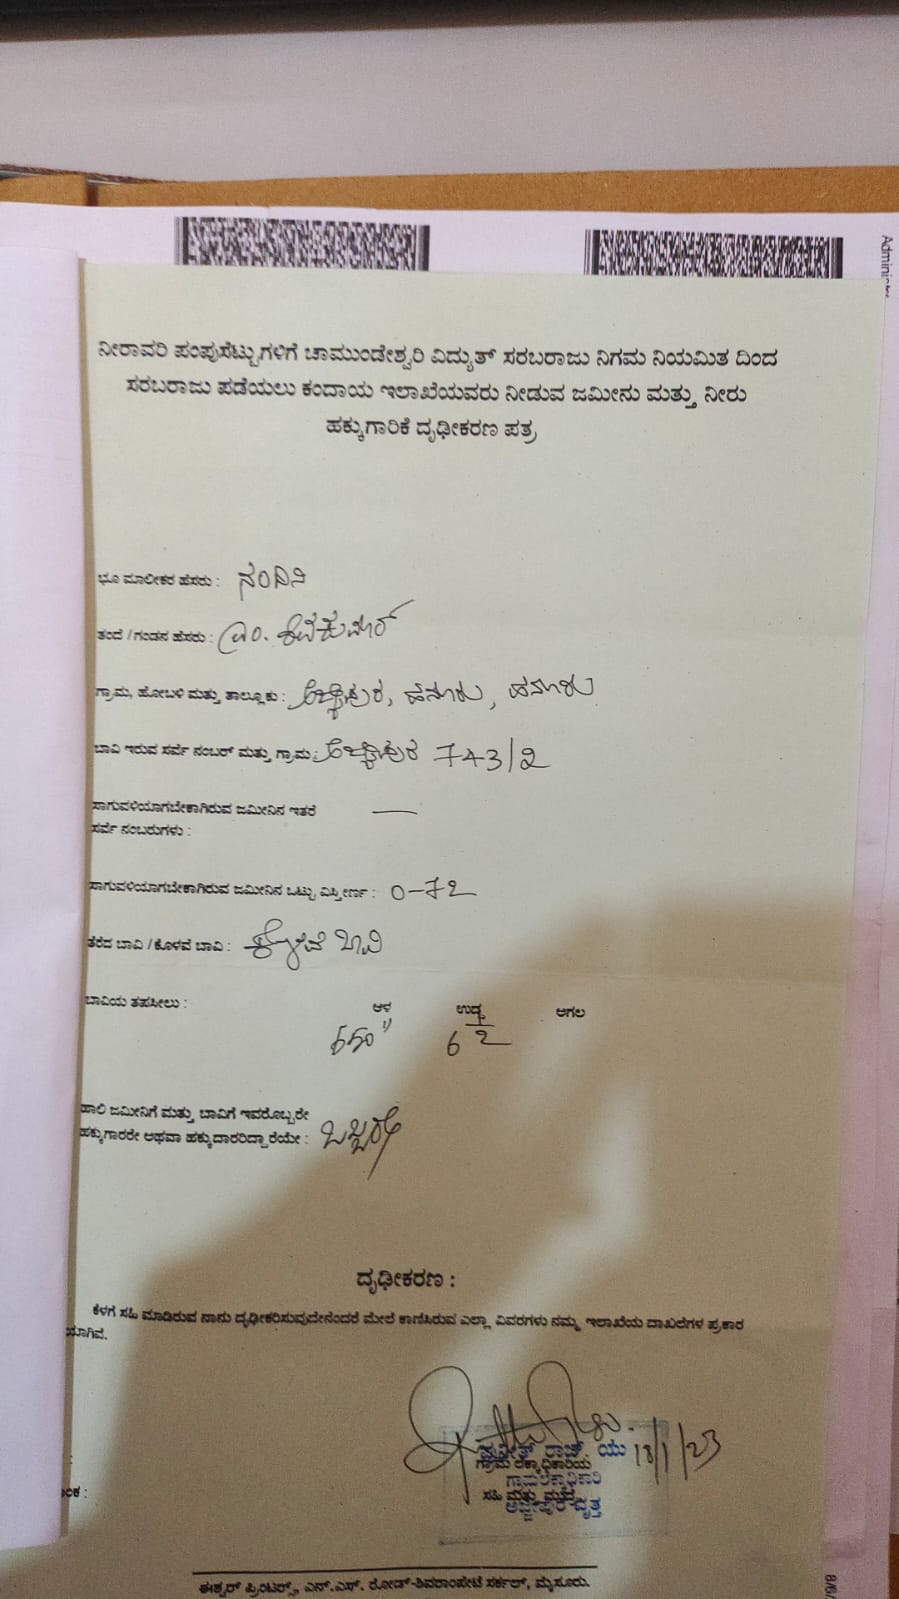 Adminis
ನೀರಾವರಿ ಪಂಪುಸೆಟ್ಟುಗಳಿಗೆ ಚಾಮುಂಡೇಶ್ವರಿ ವಿದ್ಯುತ್ ಸರಬರಾಜು ನಿಗಮ ನಿಯಮಿತ ದಿಂದ
ಸರಬರಾಜು ಪಡೆಯಲು ಕಂದಾಯ ಇಲಾಖೆಯವರು ನೀಡುವ ಜಮೀನು ಮತ್ತು ನೀರು
ಹಕ್ಕುಗಾರಿಕೆ ದೃಢೀಕರಣ ಪತ್ರ
ಭೂ ಮಾಲೀಕರ ಹೆಸರು : ನಂದಿನಿ
ತಂದೆ / ಗಂಡನ ಹೆಸರು : ಎಂ. ಶಿವಕುಮಾರ್
ಗ್ರಾಮ, ಹೋಬಳಿ ಮತ್ತು ತಾಲ್ಲೂಕು : ಅಜ್ಜೀಪುರ, ಹನೂರು, ಹನೂರು
ಬಾವಿ ಇರುವ ಸರ್ವೆ ನಂಬರ್ ಮತ್ತು ಗ್ರಾಮ : ಅಜ್ಜೀಪುರ 743/2
ಸಾಗುವಳಿಯಾಗಬೇಕಾಗಿರುವ ಜಮೀನಿನ ಇತರೆ —
ಸರ್ವೆ ನಂಬರುಗಳು :
ಸಾಗುವಳಿಯಾಗಬೇಕಾಗಿರುವ ಜಮೀನಿನ ಒಟ್ಟು ವಿಸ್ತೀರ್ಣ : 0-72
ತೆರೆದ ಬಾವಿ / ಕೊಳವೆ ಬಾವಿ : ಕೊಳವೆ ಬಾವಿ
ಬಾವಿಯ ತಪಸೀಲು : ಆಳ ಉದ್ದ ಅಗಲ
650" 6 2
ಹಾಲಿ ಜಮೀನಿಗೆ ಮತ್ತು ಬಾವಿಗೆ ಇವರೊಬ್ಬರೇ
ಹಕ್ಕುಗಾರರೇ ಅಥವಾ ಹಕ್ಕುದಾರರಿದ್ದಾರೆಯೇ : ಒಬ್ಬರೇ
ದೃಢೀಕರಣ :
ಕೆಳಗೆ ಸಹಿ ಮಾಡಿರುವ ನಾನು ದೃಢೀಕರಿಸುವುದೇನೆಂದರೆ ಮೇಲೆ ಕಾಣಿಸಿರುವ ಎಲ್ಲಾ ವಿವರಗಳು ನಮ್ಮ ಇಲಾಖೆಯ ದಾಖಲೆಗಳ ಪ್ರಕಾರ
ಯಾಗಿವೆ.
ರಾಜ್. ಯು 18/1/23
ಗ್ರಾಮ ಲೆಕ್ಕಾಧಿಕಾರಿಯ
ಗ್ರಾಮಲೆಕ್ಕಾಧಿಕಾರಿ
ಸಹಿ ಮತ್ತು ಮೊಹರು
ಅಜ್ಜೀಪುರ ವೃತ್ತ
ಂಕ :
ಈಶ್ವರ್ ಪ್ರಿಂಟರ್‍ಸ್, ಎನ್.ಎಸ್. ರೋಡ್-ಶಿವರಾಂಪೇಟೆ ಸರ್ಕಲ್, ಮೈಸೂರು.